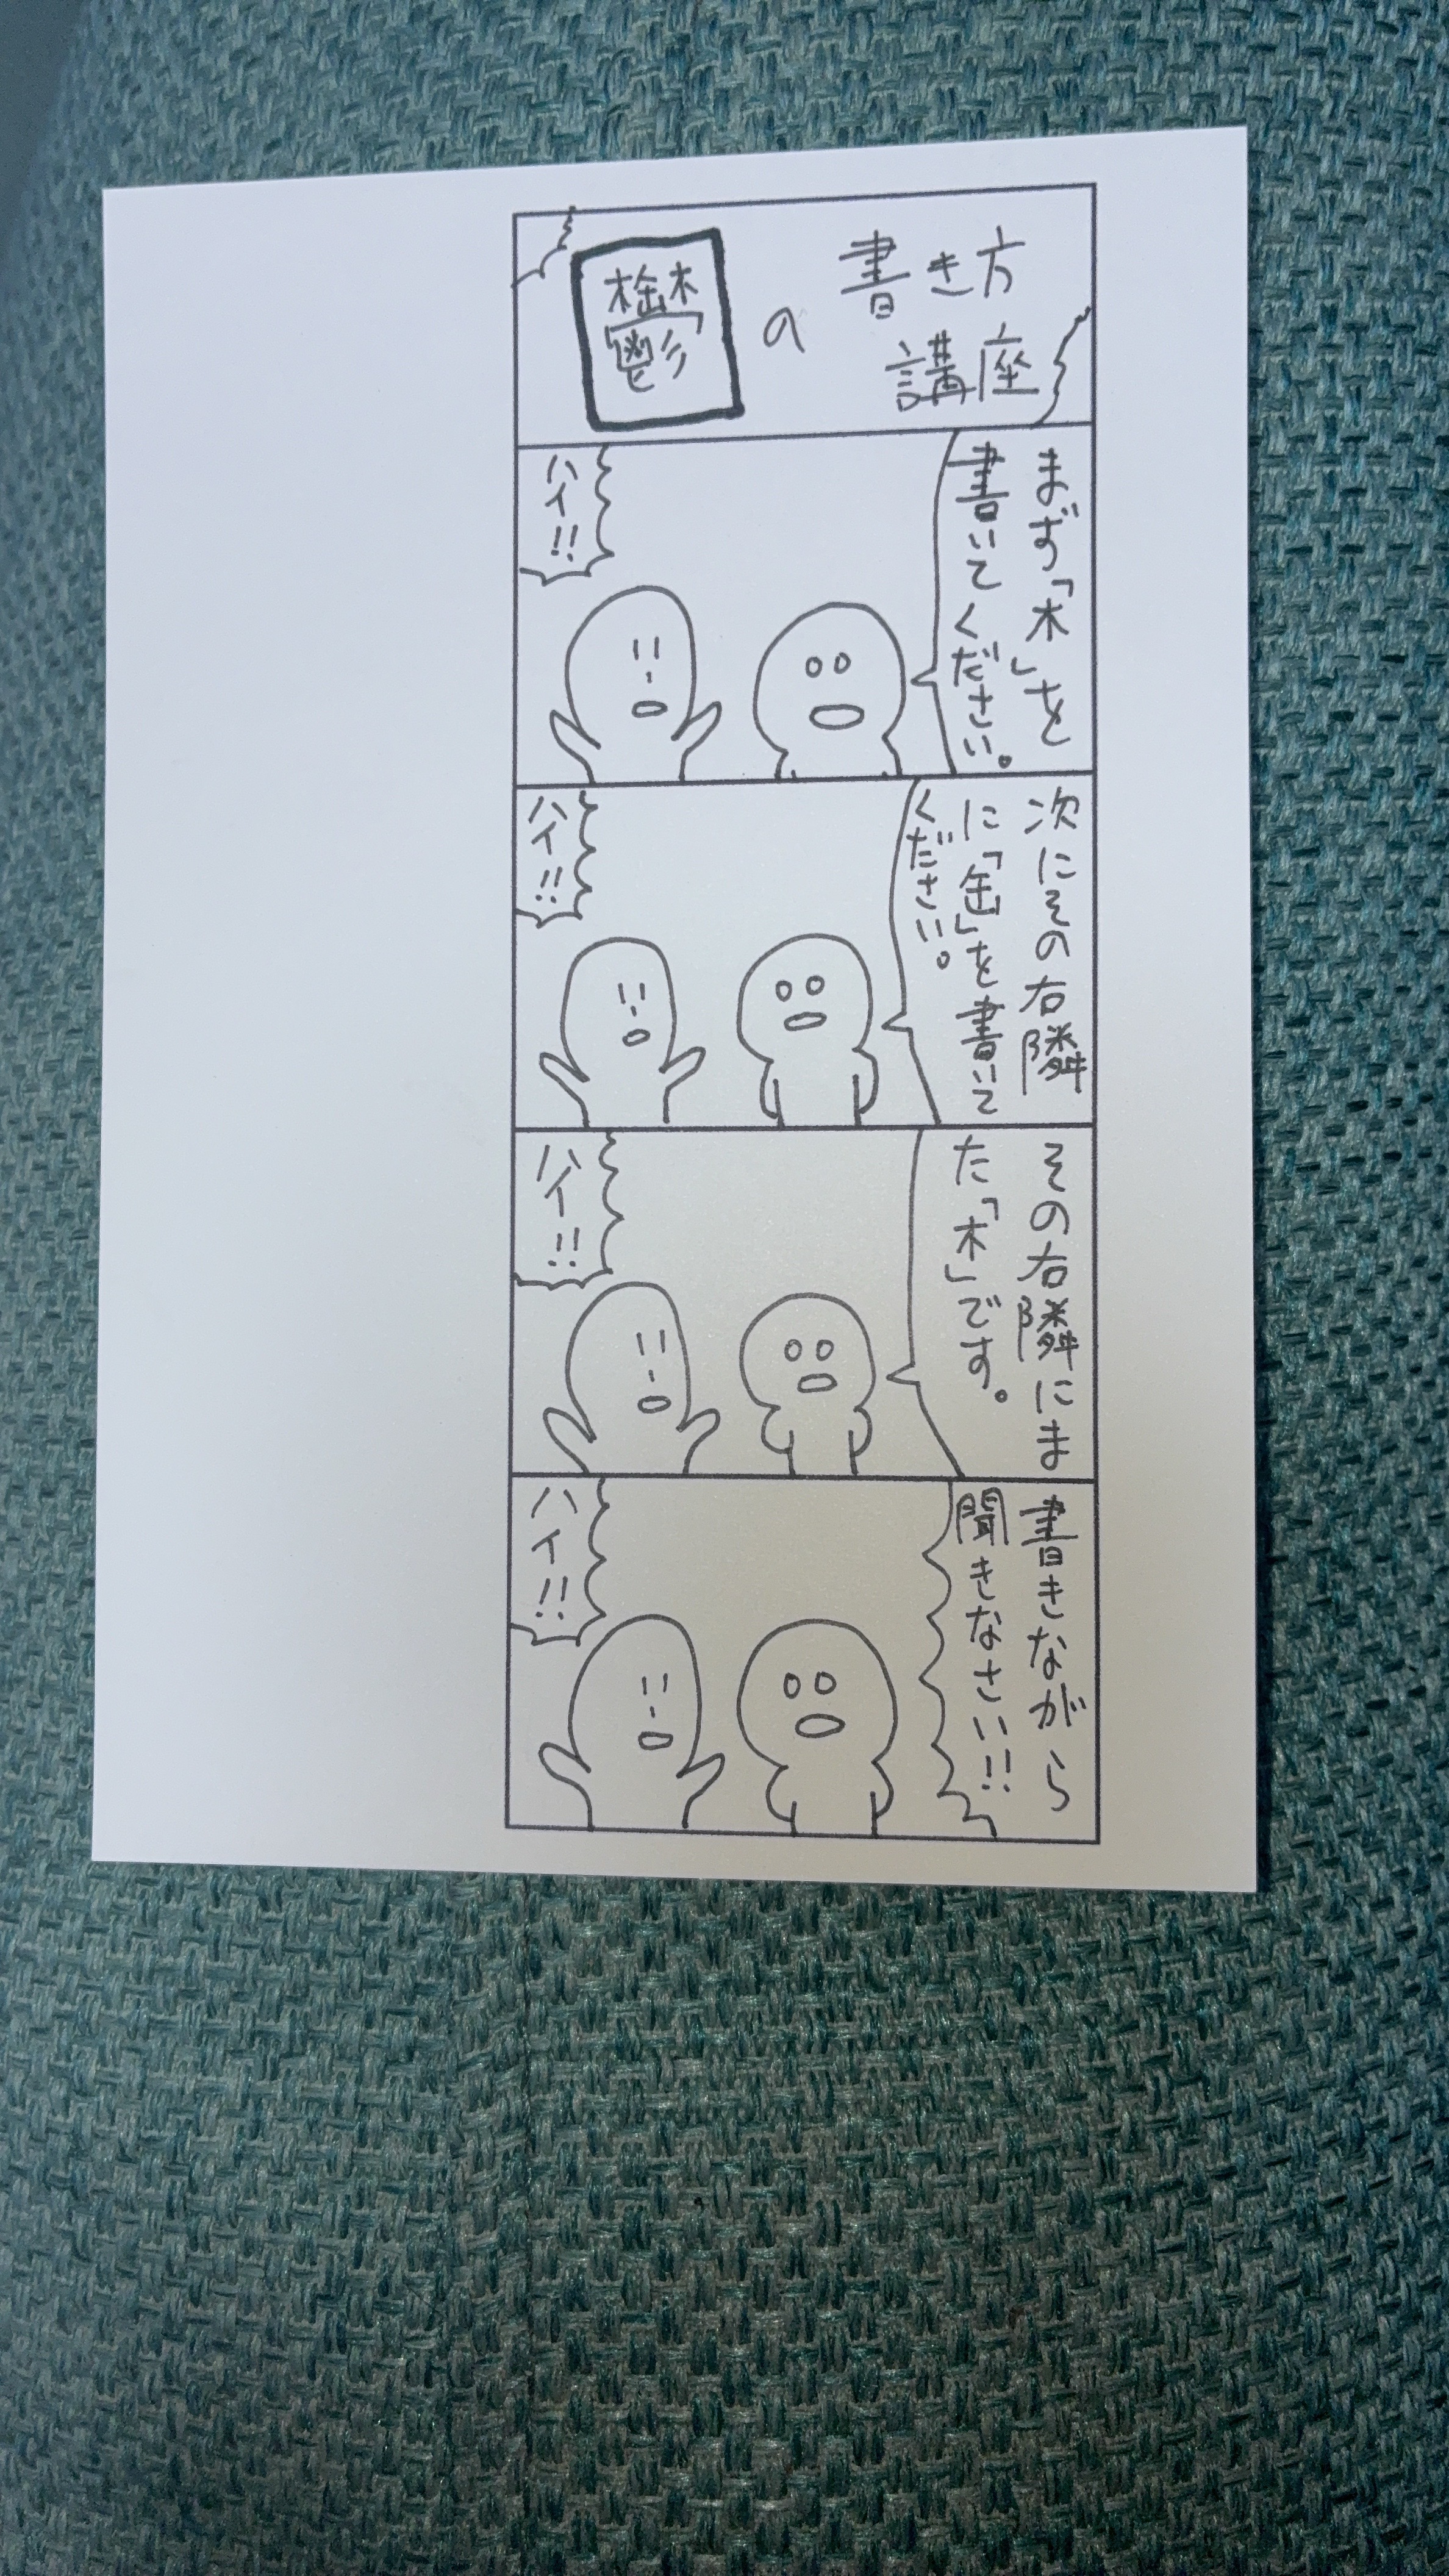 鬱の書き方
講座
まず「木」を
書いてください。
ハイ!!
次にその右隣
に「缶」を書いて
ください。
ハイ!!
その右隣にま
た「木」です。
ハイ!!
書きながら
聞きなさい!!
ハイ!!